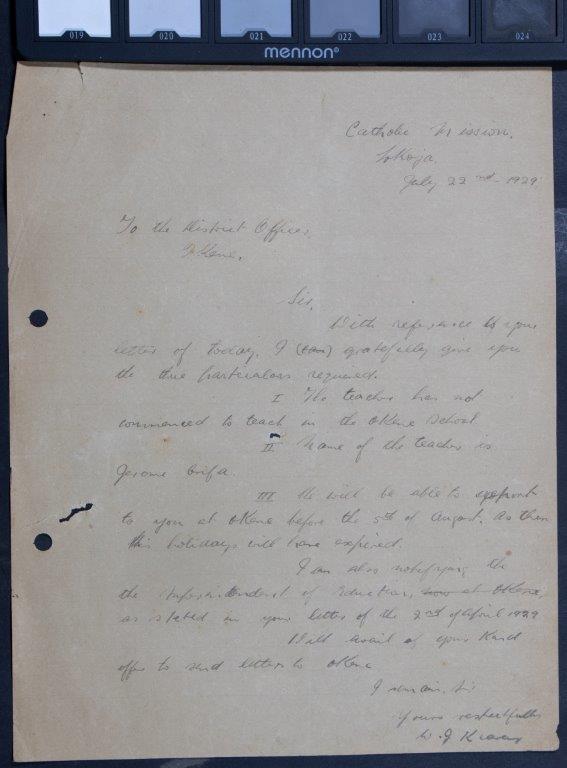 019 020 021 022 023 024
mennon®
Catholic Mission,
Lokoja.
July 22nd - 1929
To the District Officer,
Okene.
Sir,
With reference to your
letter of today, I (can) gratefully give you
the three particulars required.
I The teacher has not
commenced to teach in the Okene School
II Name of the teacher is
Jerome
III He will be able to
to you at Okene before the 5th of August. As then
his holidays will have expired.
I am also notifying the
the Superintendent of Education, now at Okene,
as stated in your letter of the 2nd of April 1929
Will avail of your kind
offer to send letters to Okene
I remain, Sir
Yours respectfully
W. J.